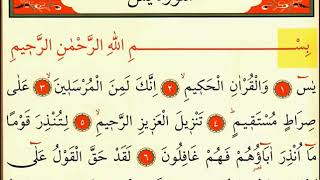 بِسْــــــمِ اللّٰهِ الرَّحْمٰنِ الرَّح۪يمِ
يٰسٓ ﴿١﴾ وَالْقُرْاٰنِ الْحَك۪يمِ ﴿٢﴾ اِنَّكَ لَمِنَ الْمُرْسَل۪ينَ ﴿٣﴾ عَلٰى
صِرَاطٍ مُسْتَق۪يمٍ ﴿٤﴾ تَنْز۪يلَ الْعَز۪يزِ الرَّح۪يمِ ﴿٥﴾ لِتُنْذِرَ قَوْمًا
مَٓا اُنْذِرَ اٰبَٓاؤُ۬هُمْ فَهُمْ غَافِلُونَ ﴿٦﴾ لَقَدْ حَقَّ الْقَوْلُ عَلٰٓى